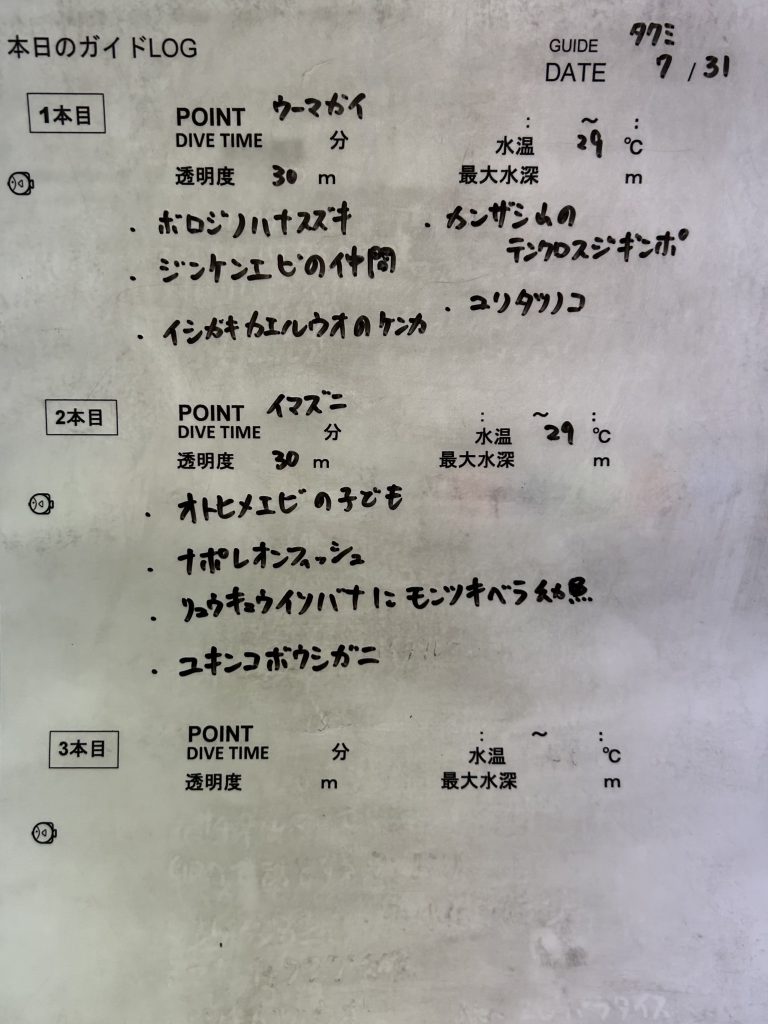 本日のガイドLOG
GUIDE タクミ
DATE 7 / 31
1本目
POINT ウーマガイ
DIVE TIME 分 : ～ :
水温 29 ℃
透明度 30 m 最大水深 m
・ボロジノハナスズキ
・ジンケンエビの仲間
・イシガキカエルウオのケンカ
・カンザシ山の
テンクロスジギンポ
・ユリタツノコ
2本目
POINT イマズニ
DIVE TIME 分 : ～ :
水温 29 ℃
透明度 30 m 最大水深 m
・オトヒメエビの子ども
・ナポレオンフィッシュ
・リュウキュウイソバナにモンツキベラ幼魚
・ユキンコボウシガニ
3本目
POINT : ～ :
DIVE TIME 分 水温 ℃
透明度 m 最大水深 m